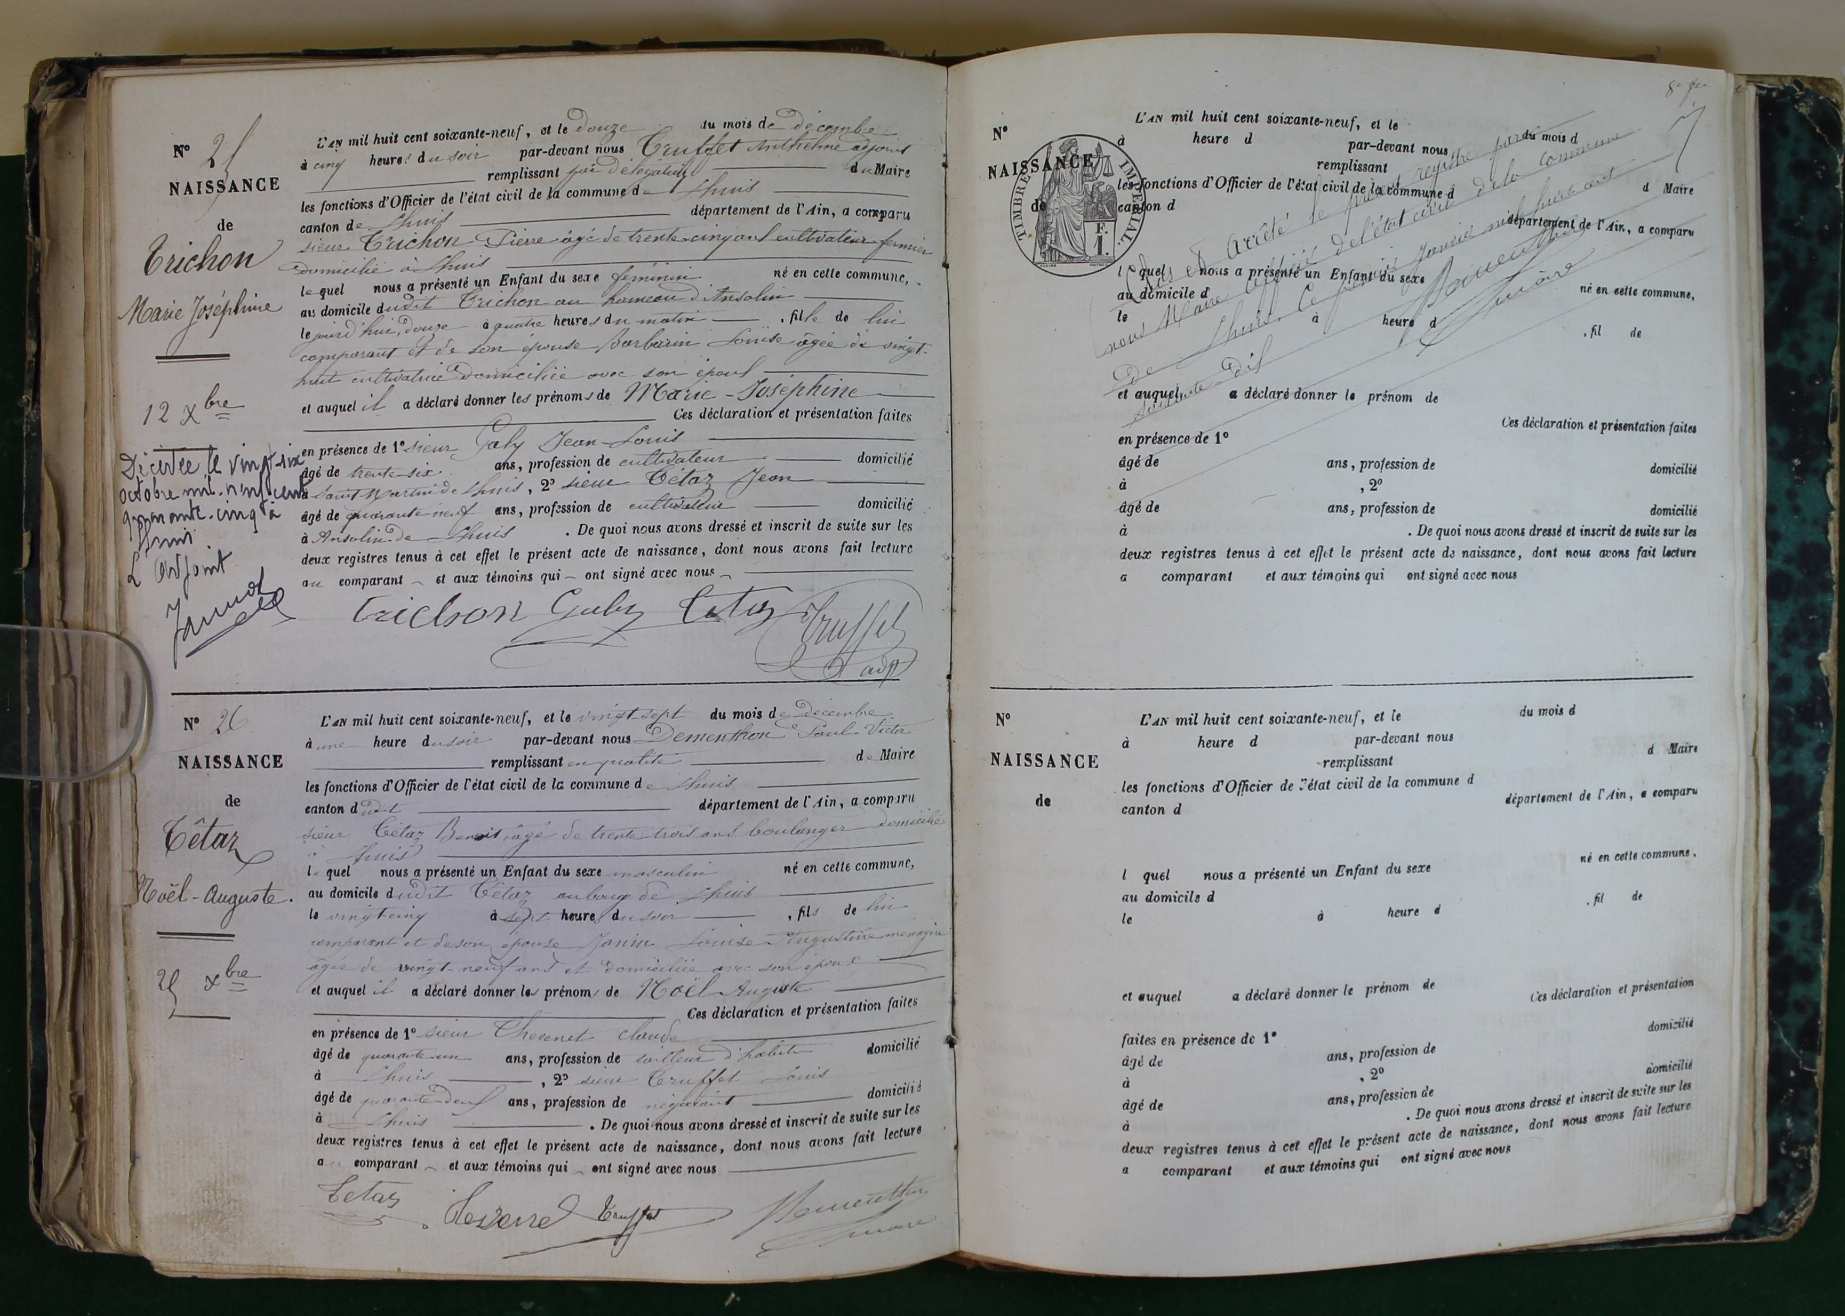 N° 25
NAISSANCE
de
Trichon
Marie Joséphine
12 Xbre
Décédée le vingt-six
octobre mil-neuf cent
quarante-cinq à
Lhuis
L'Adjoint
L'AN mil huit cent soixante-neuf, et le douze du mois de décembre
à cinq heures du soir par-devant nous Truffet Anthelme adjoint
remplissant par délégation du Maire
les fonctions d'Officier de l'état civil de la commune de Lhuis
canton de Lhuis département de l'Ain, a comparu
sieur Trichon Pierre âgé de trente-cinq ans cultivateur fermier
domicilié à Lhuis
lequel nous a présenté un Enfant du sexe féminin né en cette commune,
au domicile dudit Trichon au hameau d'Ansolin
le jourd'hui, douze à quatre heures du matin , fille de lui
comparant et de son épouse Barbarin Louise âgée de vingt-
huit cultivatrice domiciliée avec son époux
et auquel il a déclaré donner les prénoms de Marie-Joséphine
Ces déclaration et présentation faites
en présence de 1° sieur Gaby Jean-Louis
âgé de trente-six ans, profession de cultivateur domicilié
à Saint Martin de Lhuis, 2° sieur Tétaz Jean
âgé de quarante neuf ans, profession de cultivateur domicilié
à Ansolin de Lhuis . De quoi nous avons dressé et inscrit de suite sur les
deux registres tenus à cet effet le présent acte de naissance, dont nous avons fait lecture
au comparant et aux témoins qui ont signé avec nous
Trichon Gaby Tétaz Truffet
adjt
N° 26
NAISSANCE
de
Têtaz
Noël-Auguste.
25 Xbre
L'AN mil huit cent soixante-neuf, et le vingt sept du mois de décembre
à une heure du soir par-devant nous Dementhon Paul-Victor
remplissant en qualité de Maire
les fonctions d'Officier de l'état civil de la commune de Lhuis
canton dudit département de l'Ain, a comparu
sieur Tétaz Benoit âgé de trente-trois ans boulanger domicilié
à Lhuis
lequel nous a présenté un Enfant du sexe masculin né en cette commune,
au domicile dudit Tétaz au bourg de Lhuis
le vingt cinq à sept heures du soir , fils de lui
comparant et de son épouse Janin Louise Augustine ménagère
âgée de vingt-neuf ans et domiciliée avec son époux
et auquel il a déclaré donner les prénoms de Noël Auguste
Ces déclaration et présentation faites
en présence de 1° sieur Chevenet Claude
âgé de quarante un ans, profession de tailleur d'habits domicilié
à Lhuis , 2° sieur Truffet Louis
âgé de quarante-deux ans, profession de négociant domicilié
à Lhuis . De quoi nous avons dressé et inscrit de suite sur les
deux registres tenus à cet effet le présent acte de naissance, dont nous avons fait lecture
au comparant et aux témoins qui ont signé avec nous
Tetaz Truffet Dementhon
maire
N°
NAISSANCE
de
TIMBRE IMPERIAL
F.
1.
L'AN mil huit cent soixante-neuf, et le du mois d
à heure d par-devant nous
remplissant d Maire
les fonctions d'Officier de l'état civil de la commune d
canton d département de l'Ain, a comparu
l quel nous a présenté un Enfant du sexe né en cette commune,
au domicile d
le à heure d , fil de
et auquel a déclaré donner le prénom de
Ces déclaration et présentation faites
en présence de 1°
âgé de ans, profession de domicilié
à , 2°
âgé de ans, profession de domicilié
à . De quoi nous avons dressé et inscrit de suite sur les
deux registres tenus à cet effet le présent acte de naissance, dont nous avons fait lecture
a comparant et aux témoins qui ont signé avec nous
Clos et Arrêté le présent registre par
nous Maire officier de l'état civil de la commune
de Lhuis. Ce premier Janvier mil huit cent
soixante-dix
Dementhon
maire
N°
NAISSANCE
de
L'AN mil huit cent soixante-neuf, et le du mois d
à heure d par-devant nous
remplissant d Maire
les fonctions d'Officier de l'état civil de la commune d
canton d département de l'Ain, a comparu
l quel nous a présenté un Enfant du sexe né en cette commune,
au domicile d
le à heure d , fil de
et auquel a déclaré donner le prénom de
Ces déclaration et présentation
faites en présence de 1°
âgé de ans, profession de domicilié
à , 2°
âgé de ans, profession de domicilié
à . De quoi nous avons dressé et inscrit de suite sur les
deux registres tenus à cet effet le présent acte de naissance, dont nous avons fait lecture
a comparant et aux témoins qui ont signé avec nous